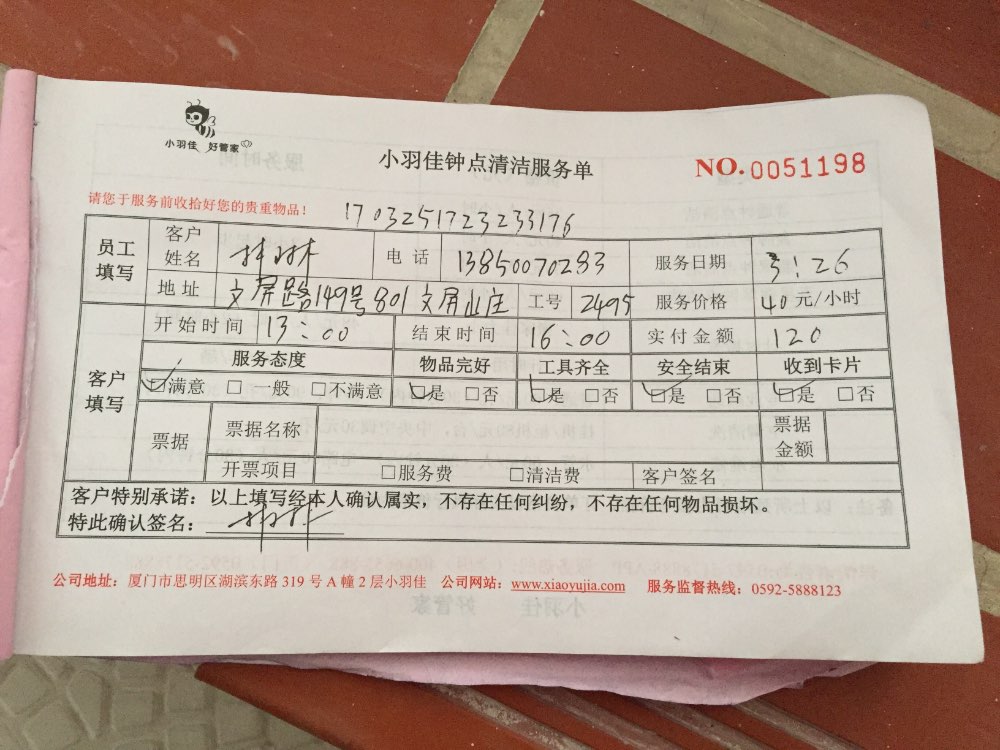 小羽佳 好管家
小羽佳钟点清洁服务单
NO.0051198
请您于服务前收拾好您的贵重物品！
1703251723233176
员工填写 客户姓名 电话 13850070283 服务日期 3:26
地址 文屏路149号801文屏山庄 工号 2495 服务价格 40元/小时
客户填写 开始时间 13:00 结束时间 16:00 实付金额 120
服务态度 物品完好 工具齐全 安全结束 收到卡片
☑满意 □一般 □不满意 ☑是 □否 ☑是 □否 ☑是 □否 ☑是 □否
票据 票据名称 票据金额
开票项目 □服务费 □清洁费 客户签名
客户特别承诺：以上填写经本人确认属实，不存在任何纠纷，不存在任何物品损坏。
特此确认签名：
公司地址：厦门市思明区湖滨东路319号A幢2层小羽佳 公司网站：www.xiaoyujia.com 服务监督热线：0592-5888123